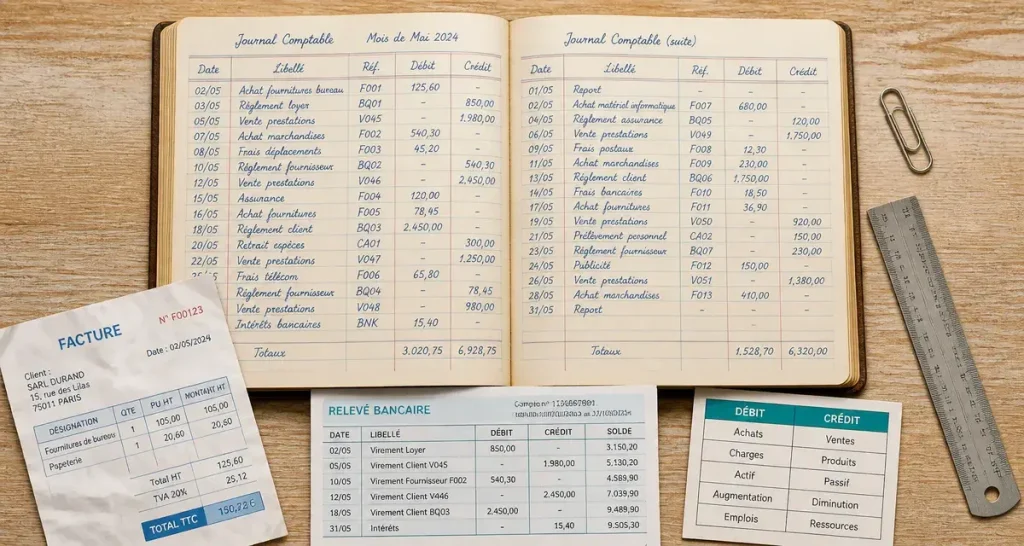 Journal Comptable Mois de Mai 2024
Date Libellé Réf. Débit Crédit
02/05 Achat fournitures bureau F001 125,60
03/05 Réglement loyer BQ01 - 850,00
05/05 Vente prestations V045 - 1.980,00
07/05 Achat marchandises F002 540,30 -
08/05 Frais déplacements F003 45,20 -
10/05 Réglement fournisseur BQ02 - 540,30
12/05 Vente prestations V046 - 2,450,00
15/05 Assurance F004 120,00 -
16/05 Achat fournitures F005 78,45 -
18/05 Réglement client BQ03 2.450,00 -
20/05 Retrait espèces CA01 - 300,00
22/05 Vente prestations V047 - 1.250,00
Frais télécom F006 65,80 -
Réglement fournisseur BQ04 - 78,45
Vente prestations V048 - 980,00
Intérêts bancaires BNK 15,40 -
Totaux 3.020,75 6,928,75
Journal Comptable (suite)
Date Libellé Réf. Débit Crédit
01/05 Report - - -
02/05 Achat matériel informatique F007 680,00 -
04/05 Réglement assurance BQ05 - 120,00
06/05 Vente prestations V049 - 1,750,00
09/05 Frais postaux F008 12,30 -
11/05 Achat marchandises F009 230,00 -
13/05 Réglement client BQ06 1.750,00 -
14/05 Frais bancaires F010 18,50 -
17/05 Achat fournitures F011 36,90 -
19/05 Vente prestations V050 - 920,00
21/05 Prélèvement personnel CA02 - 150,00
23/05 Réglement fournisseur BQ07 - 230,00
24/05 Publicité F012 150,00 -
26/05 Vente prestations V051 - 1,380,00
28/05 Achat marchandises F013 410,00 -
31/05 Report - - -
Totaux 1.528,70 6,320,00
FACTURE
N° F00123
Date : 02/05/2024
Client :
SARL DURAND
15, rue des Lilas
75011 PARIS
DÉSIGNATION QTE PU HT MONTANT HT
Fournitures de bureau 1 105,00 105,00
Papeterie 1 20,60 20,60
Total HT 125,60
TVA 20% 25,12
TOTAL TTC
RELEVÉ BANCAIRE
Compte n°
DATE LIBELLÉ DÉBIT CRÉDIT SOLDE
02/05 Virement Loyer 850,00 - 3.150,20
05/05 Virement Client V045 - 1.980,00 5,130,20
10/05 Virement Fournisseur F002 540,30 - 4.589,90
12/05 Virement Client V446 - 2.450,00 7.039,90
18/05 Virement Client BQ03 2.450,00 - 9.489,90
31/05 Intérêts - 15,40 9.505,30
DÉBIT CRÉDIT
Achats Ventes
Charges Produits
Actif Passif
Augmentation Diminution
Emplois Ressources